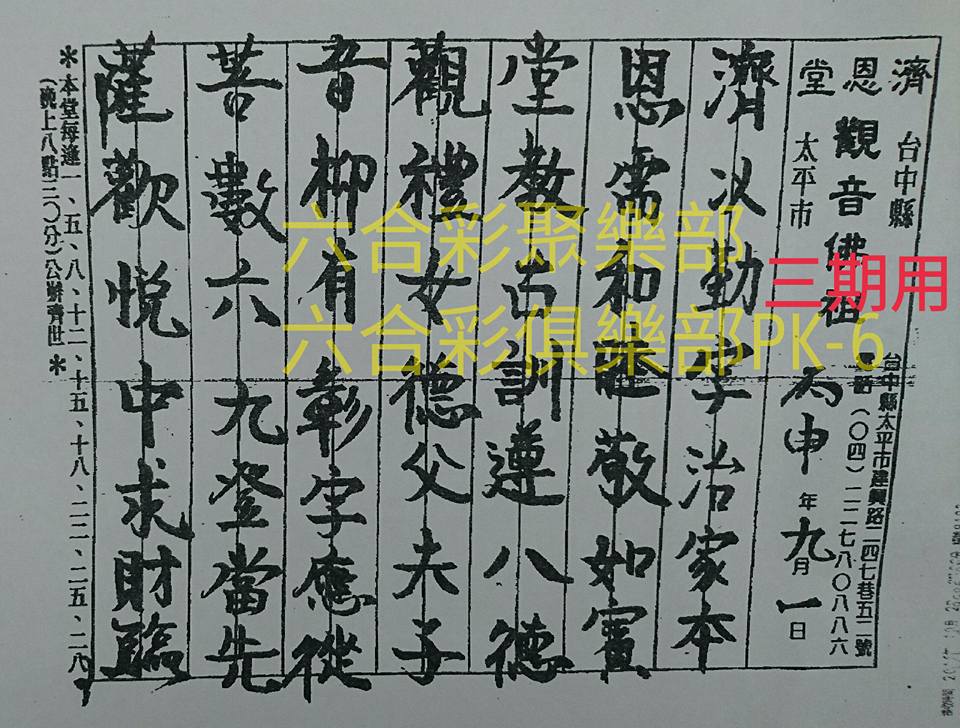 濟恩堂
觀音佛祖
台中縣
太平市
台中縣太平市建興路二四七巷五二號
(〇四)二二七八〇八八六
丙申年九月一日
濟以勤字治家本
恩需和睦敬如賓
堂教古訓遵八德
觀禮女德父夫子
音柳有彰字應從
菩數六九登當先
薩歡悅中求財臨
*本堂每逢一、五、八、十二、十五、十八、二二、二五、二八
(晚上八點三〇分)公辦濟世*
六合彩聚樂部
六合彩俱樂部PK-6
三期用